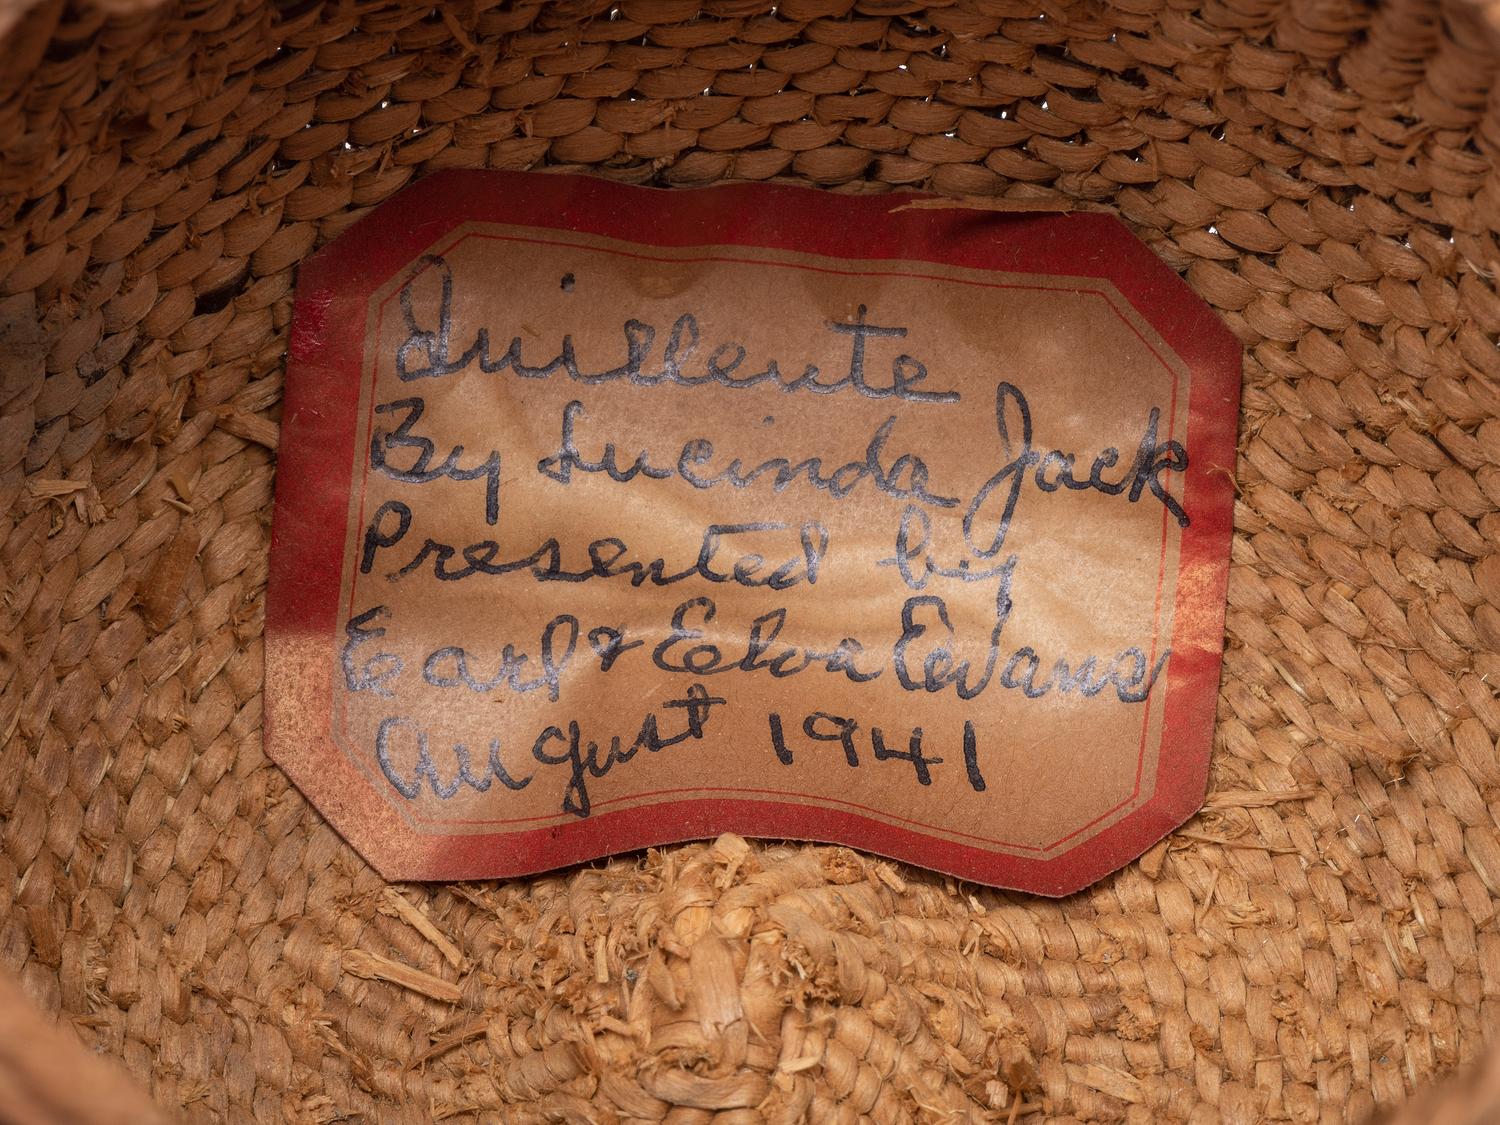 Quillente
By Lucinda Jack
Presented by
Earl & Elva Evans
August 1941